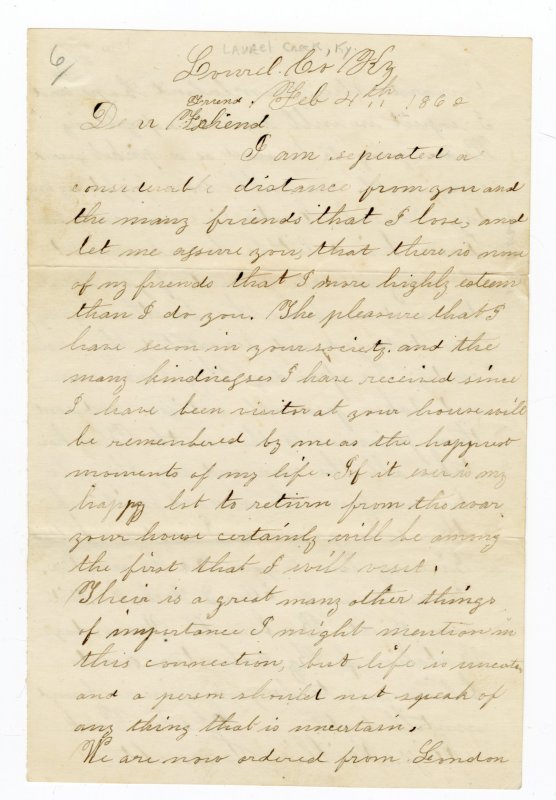 6/
LAUREL CREEK, Ky.
Lourel. Co' Ky
Feb 4th 1862
Friend
Dear Fehiend
I am seperated a
considerable distance from you and
the many friends that I love, and
let me assure you, that there is none
of my friends that I more highly esteem
than I do you. The pleasure that I
have seen in your society. and the
many kindnesses I have received since
I have been visitor at your house will
be remembered by me as the happiest
moments of my life. If it ever is my
happy lot to return from the war
your house certainly will be among
the first that I will visit.
Their is a great many other things
of importance I might mention in
this connection, but life is
and a person should not speak of
any thing that is uncertain.
We are now ordered from London